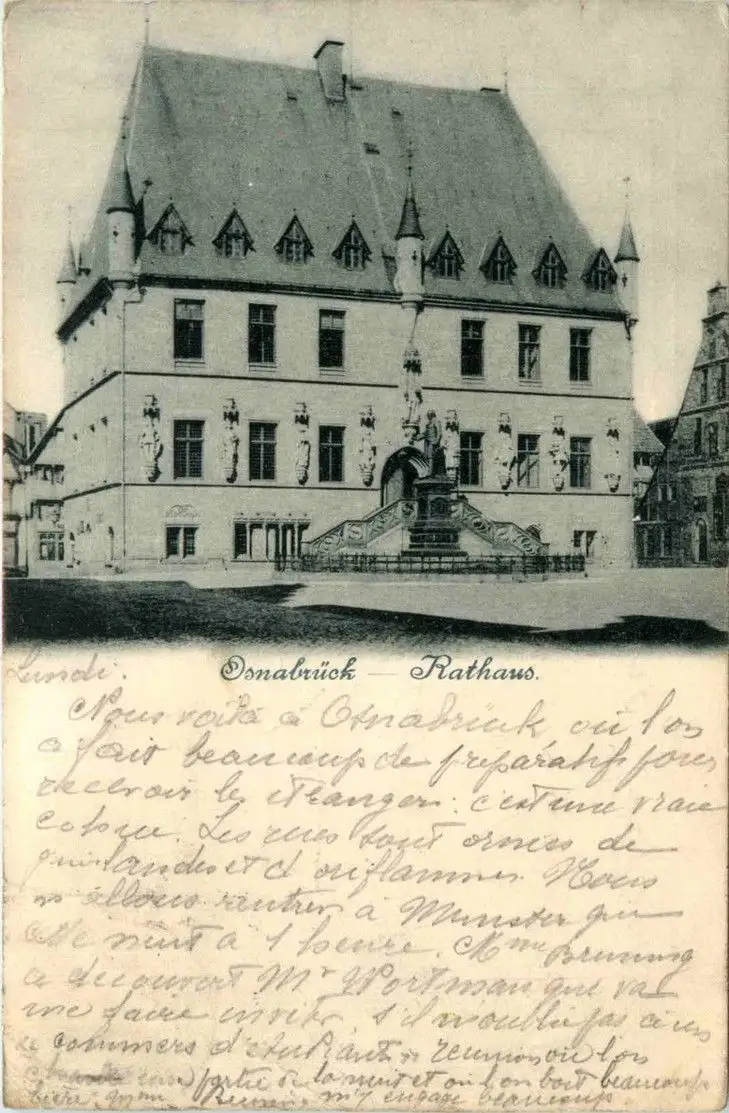 Lundi.
Osnabrück — Rathaus.
Nous voilà à Osnabrück, où l'on
a fait beaucoup de préparatifs pour
recevoir les étrangers: c'est une vraie
cohue. Les rues sont ornées de
guirlandes et d'oriflammes. Nous
n'allons rentrer à Munster que
cette nuit à 1 heure. Mme Bruning
a découvert Mr Wortman que va
me faire inviter, s'il m'oublie pas à un
commers d'étudiants, réunion où l'on
partie de la nuit et où l'on boit beaucoup
bière m'y engage beaucoup.